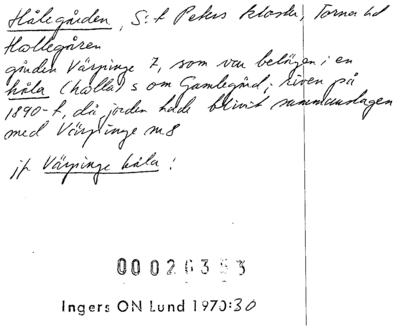 Hålegården, S:t Peters kloster, Torna hd
Hållegåren
gården Värpinge 7, som var belägen i en
håla (hålla) s om Gamlegård; riven på
1890-t, då jorden hade blivit sammanslagen
med Värpinge nr 8
jfr Värpinge håla!
00026353
Ingers ON Lund 1970:30